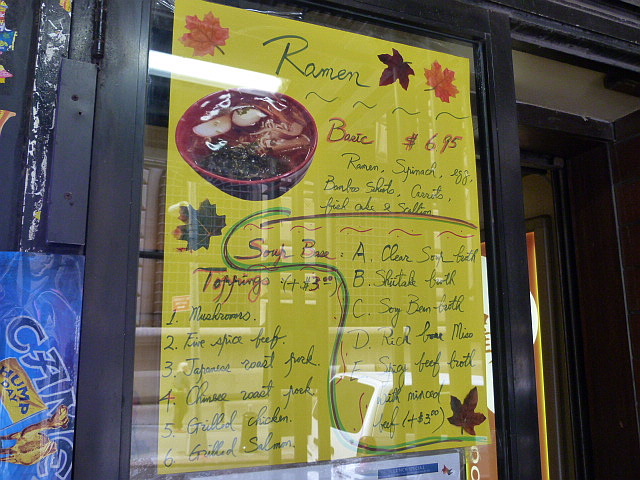 Ramen
Basic $ 6.95
Ramen, Spinach, egg,
Bamboo Shoots, Carrots,
fish cake & Scallion
Soup Base: A. Clear Soup broth
Toppings (+$3.00) B. Shiitake broth
1. Mushrooms. C. Soy Bean broth
2. Five spice beef. D. Rich bone Miso
3. Japanese roast pork. E. Spicy beef broth
4. Chinese roast pork with minced
5. Grilled chicken. beef (+$3.00)
6. Grilled Salmon.
CANE
HUMP
DAY!